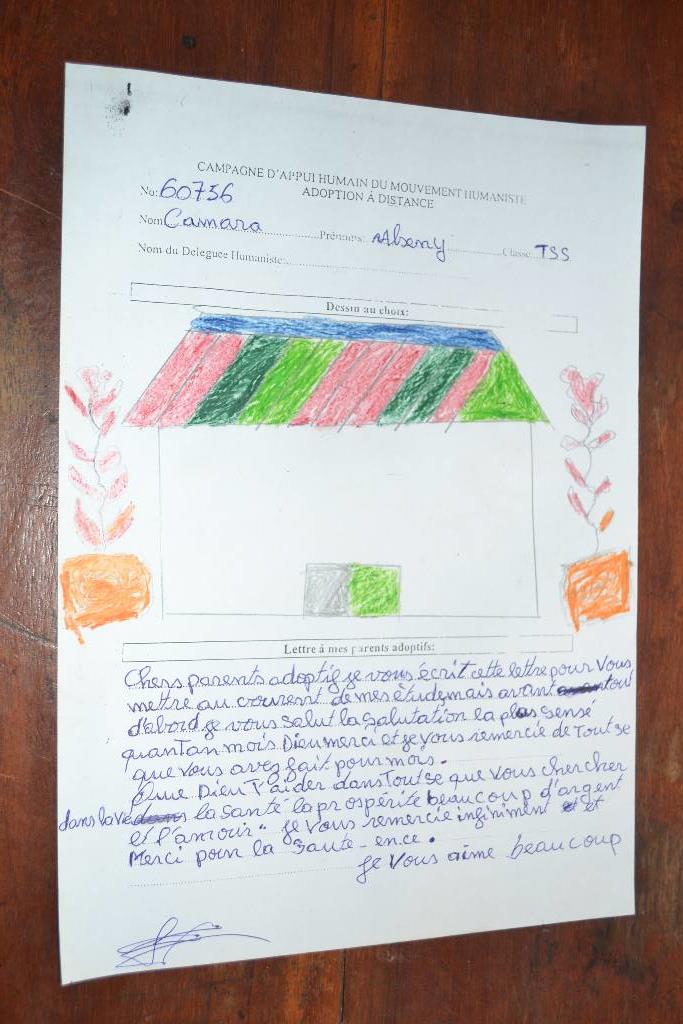 CAMPAGNE D'APPUI HUMAIN DU MOUVEMENT HUMANISTE
ADOPTION À DISTANCE
No: 60736
Nom Camara Prénoms: Alseny Classe TSS
Nom du Deleguee Humaniste:
Dessin au choix:
Lettre à mes parents adoptifs:
Chers parents adoptif je vous écrit cette lettre pour Vous
mettre au courent de mes étude mais avant tou
d'abord je vous salut la salutation la plus sensé
quanTan mois Dieu merci et je vous remercie de Tout se
que vous avez fait pour mois.
Que Dieu T'aider dans Tout se que vous chercher
dans la vie la santé la prospérité beaucoup d'argent
et l'amour. Je vous remercie infiniment et
Merci pour la Saute-en-ce.
Je vous aime beaucoup